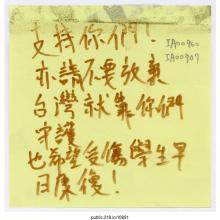 支持你們!
IA00960
IA00907
亦請不要放棄
台灣就靠你們
守護
也希望受傷學生早
日康復!
public.318.io/10891